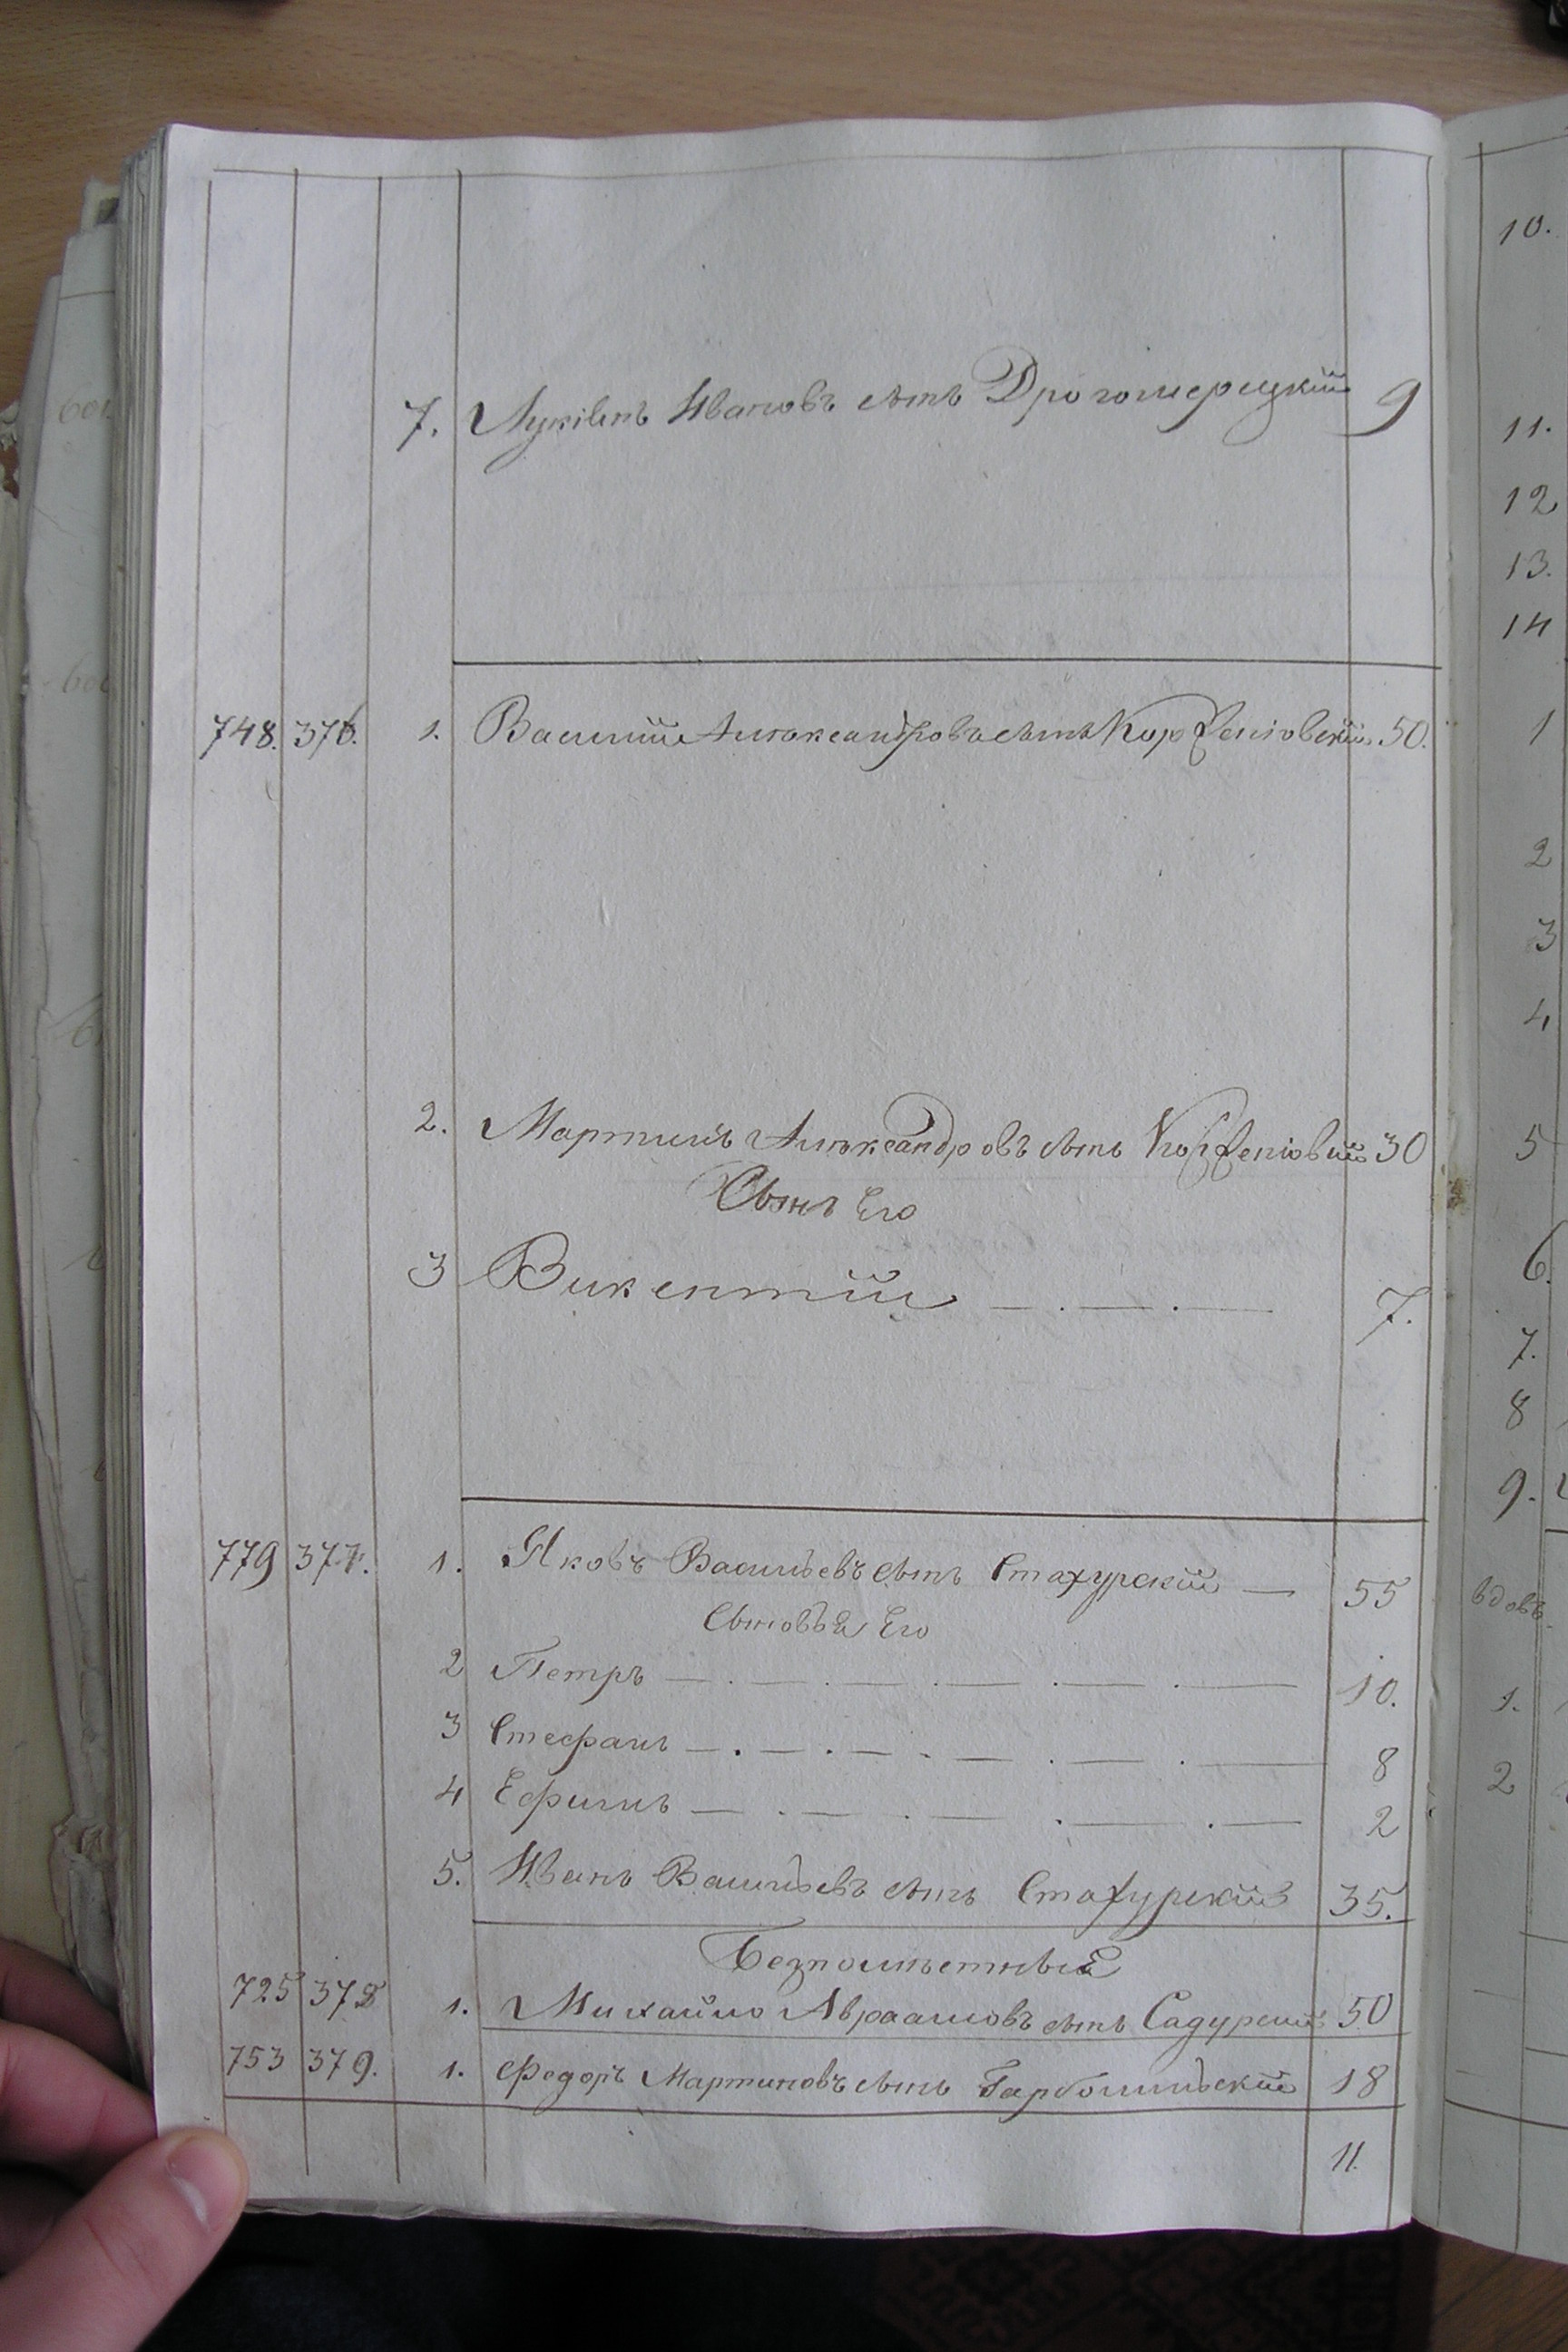 7. Лукiянъ Ивановъ сынъ Дрогомерецкий 9
748. 376. 1. Василий Алюксандровъ сынъ Корженiовский 50.
2. Мартинъ Алюксандровъ сынъ Корженiовий 30
Сынъ Его
3 Викентий 7.
779 377. 1. Яковъ Васильевъ сынъ Стахурский 55
Сыновья Его
2 Петръ 10.
3 Стефанъ 8
4 Ефимъ 2
5. Иванъ Васильевъ сынъ Стахурский 35.
Безпоместные
725 378 1. Михайло Авраамовъ сынъ Садурский 50
753 379. 1. Федоръ Мартиновъ сынъ 18
11.
10.
11.
12
13.
14
1
2
3
4
5
6.
7.
8
9.
вдовъ
1.
2